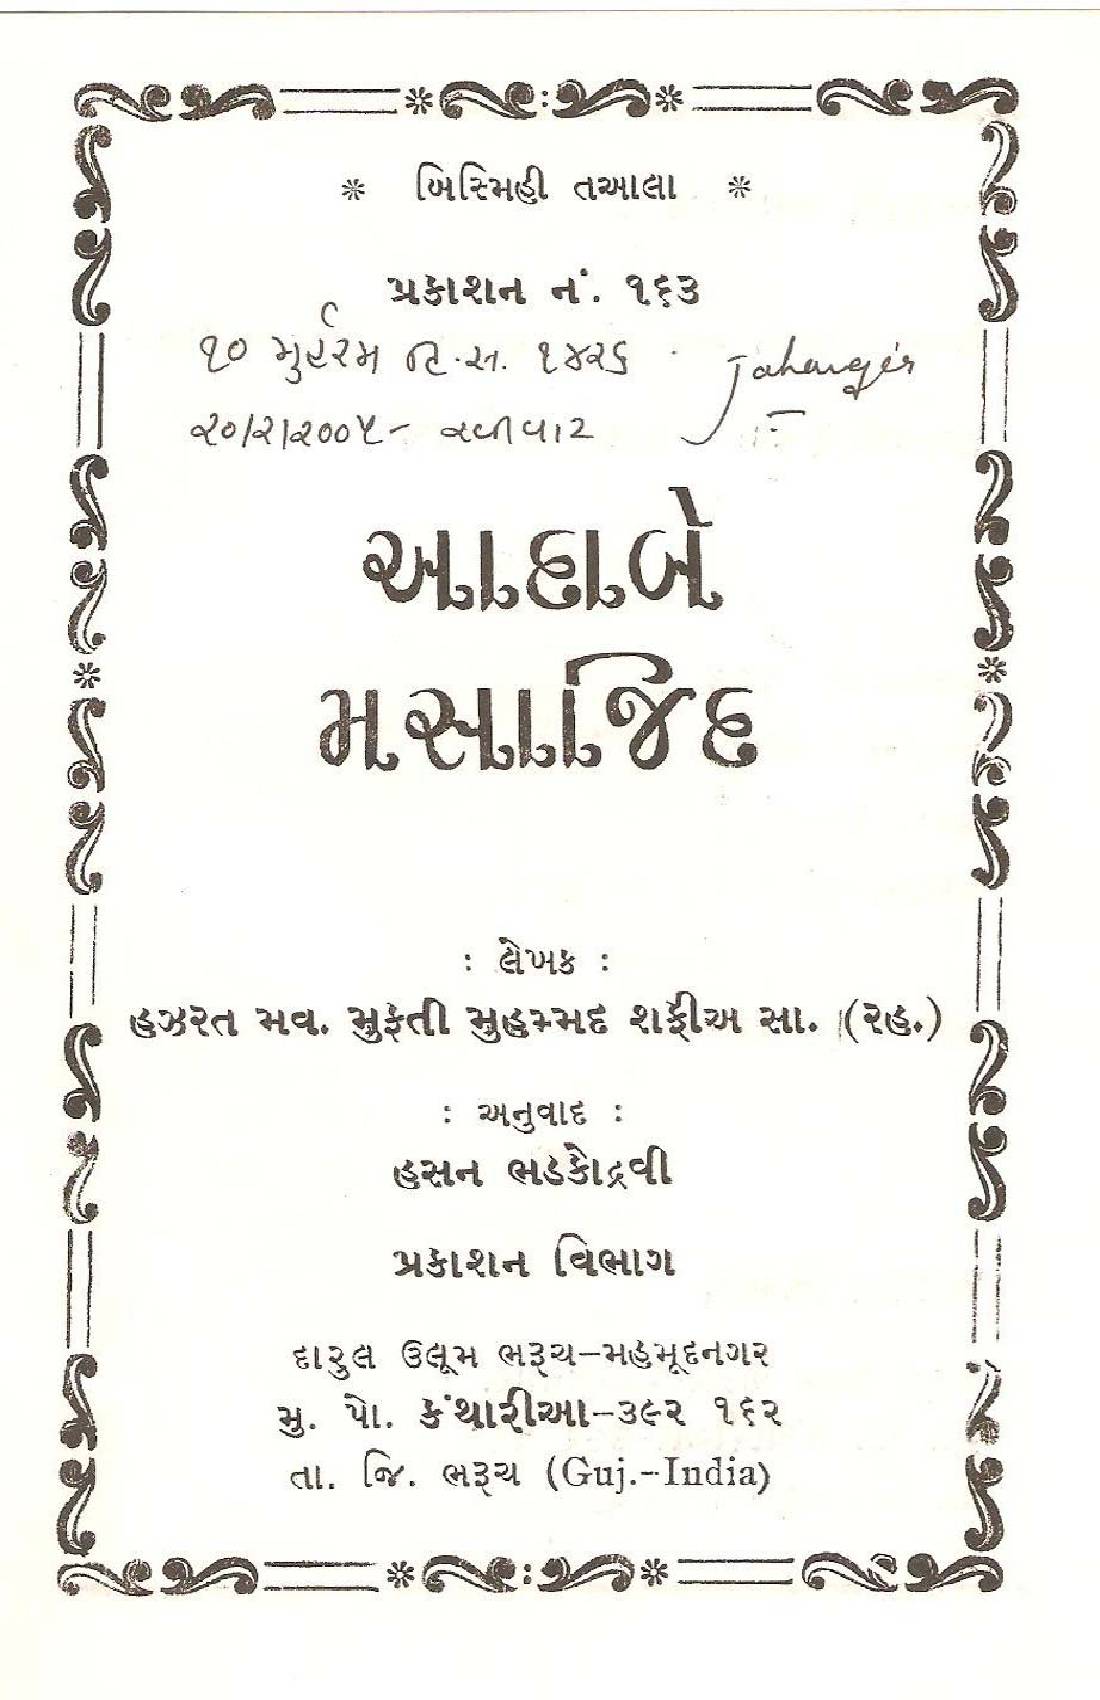 બિસ્મિહી તઆલા
પ્રકાશન નં. ૧૬૩
૧૦ મુર્હરમ હિ.સ. ૧૪૨૬
Jahangir
૨૦/૨/૨૦૦૫- રવીવાર
આદાબે
મસાજિદ
: લેખક :
હઝરત મવ. મુફતી મુહમ્મદ શફીઅ સા. (રહ.)
: અનુવાદ :
હસન ભડકોદ્રવી
પ્રકાશન વિભાગ
દારુલ ઉલૂમ ભરૂચ-મહમૂદનગર
મુ. પો. કંથારીઆ-૩૯૨ ૧૬૨
તા. જિ. ભરૂચ (Guj.-India)